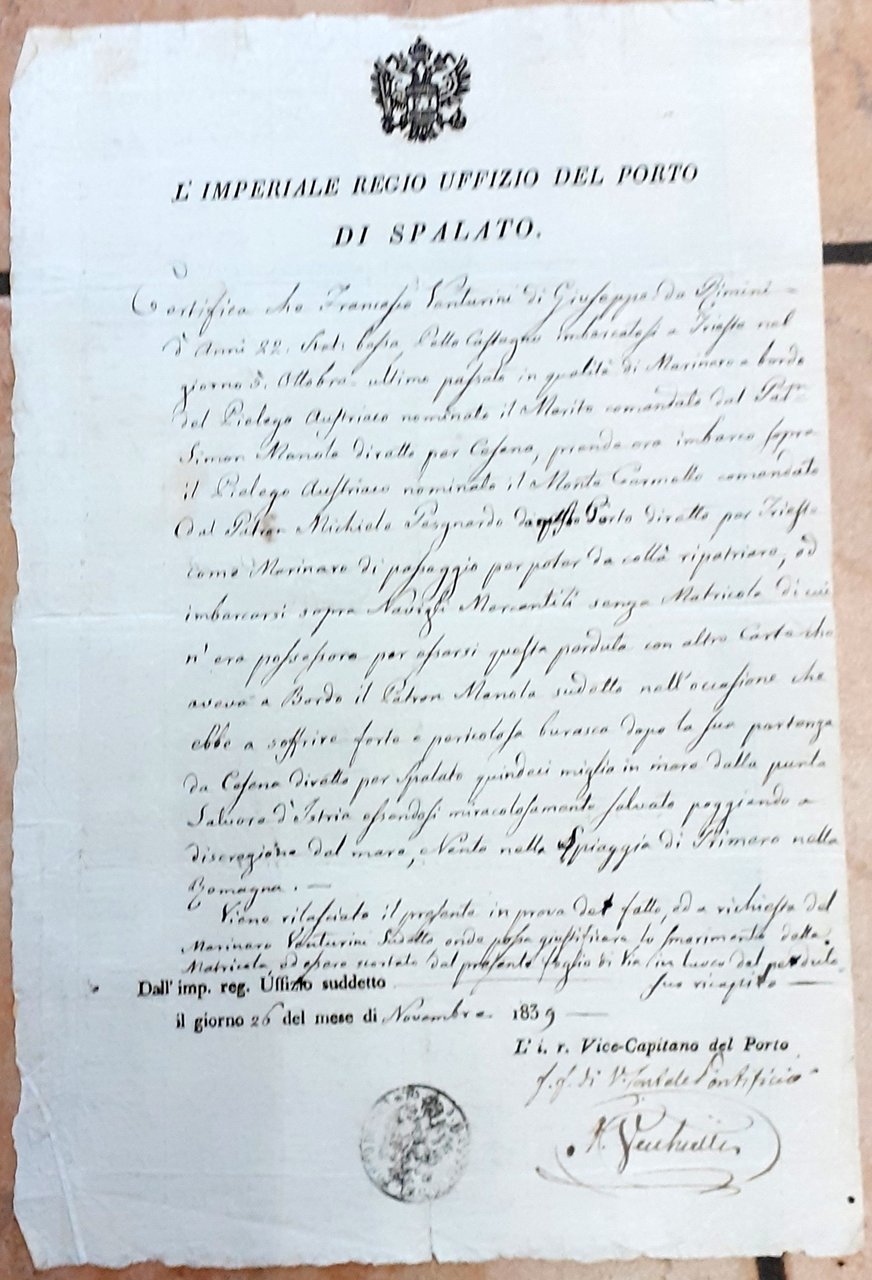 L' IMPERIALE REGIO UFFIZIO DEL PORTO
DI SPALATO.
Certifica che Francesco Venturini di Giuseppe da Rimini
d'Anni 22. Stat: bassa Pello Castagno imbarcatosi a Trieste nel
giorno 5. Ottobre ultimo passato in qualità di Marinaro a bordo
del Pielego Austriaco nominato il Merito comandato dal Patn
Simon Manola diretto per Cesena, prende ora imbarco sopra
il Pielego Austriaco nominato il Monte Carmello comandato
dal Patron Michiele da questo Porto diretto per Trieste
come Marinaro di passaggio per poter da collà ripatriare, od
imbarcarsi sopra Navigli Mercantili senza Matricola di cui
n'era possessore per essersi questa perduta con altre Carte che
aveva a Bordo il Patron Manola sudetto nell'occasione che
ebbe a soffrire forte e pericolosa burasca dopo la sua partenza
da Cesena diretto per Spalato quindeci miglia in mare dalla punta
Salvore d'Istria essendosi miracolosamente salvato poggiando a
discrezione del mare, e Vento nella Spiaggia di Primaro nella
Romagna. —
Viene rilasciato il presente in prova del fatto, ed a richiesta del
Marinaro Venturini Sudetto onde possa giustificare lo smarimento della
Matricola, ed essere scortato dal presente foglio di Via in luoco del perduto
suo ricapito —
Dall' imp. reg. Uffizio suddetto
il giorno 26 del mese di Novembre 1839 —
L' i. r. Vice-Capitano del Porto
f.f. di V. Pontificio